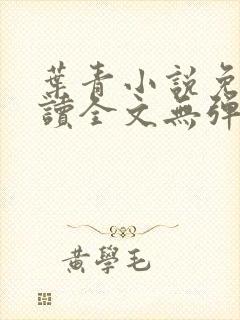 葉青小說免
讀全文無彈
黃學毛